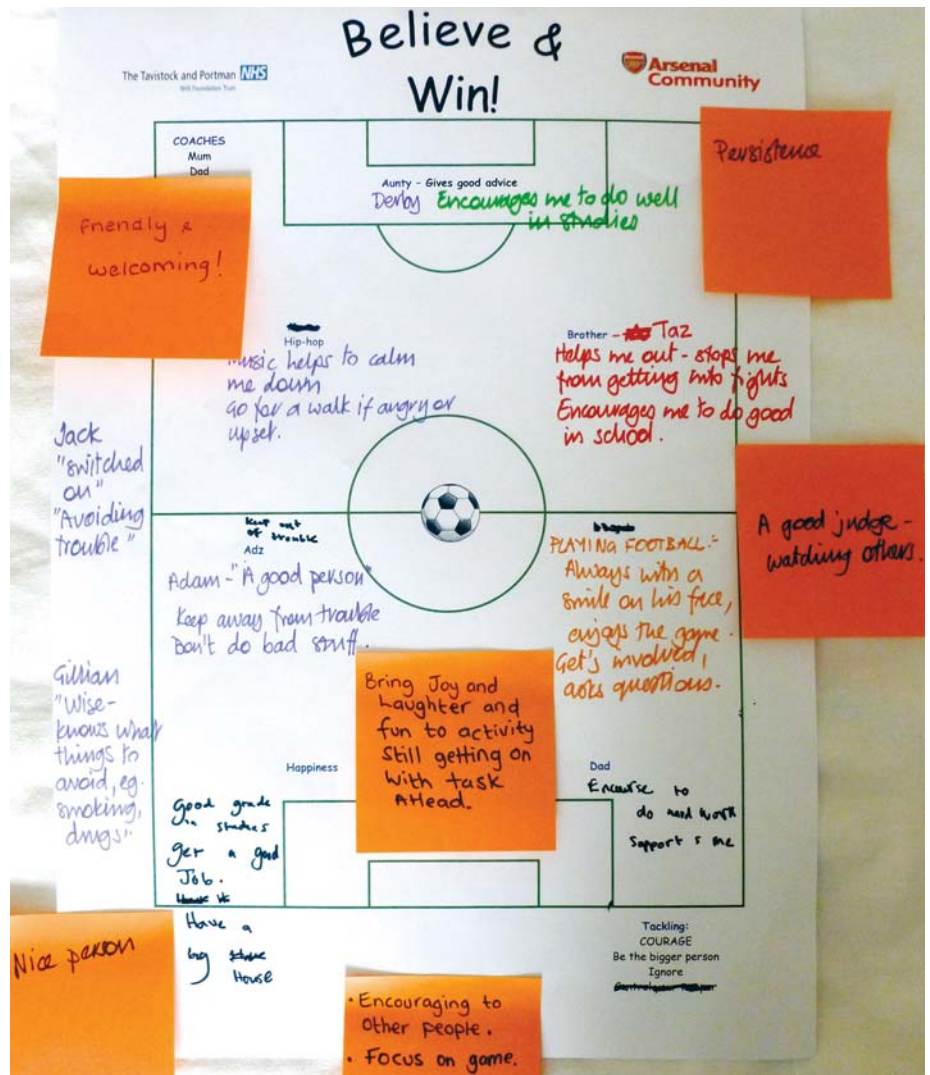 Believe &
Win!
The Tavistock and Portman NHS
NHS Foundation Trust
Arsenal
Community
COACHES
Mum
Dad
Persistence
Friendly &
welcoming!
Aunty - Gives good advice
Derby Encourages me to do well
in studies
Hip-hop
Music helps to calm
me down
Go for a walk if angry or
upset.
Brother - Taz
Helps me out - stops me
from getting into fights
Encourages me to do good
in school.
Jack
"switched
on"
"Avoiding
trouble"
Keep out
of trouble
Adz
Adam - "A good person"
Keep away from trouble
Don't do bad stuff.
PLAYING FOOTBALL:-
Always with a
smile on his face,
enjoys the game.
Get's involved,
asks questions.
A good judge -
watching others.
Gillian
"Wise-
knows what
things to
avoid, eg.
smoking,
drugs".
Bring Joy and
Laughter and
fun to activity
still getting on
with task
AHead.
Happiness
Good grade
in studies
get a good
Job.
Have a
big
House
Dad
to
do hard work
Support s me
Tackling:
COURAGE
Be the bigger person
Ignore
Nice person
• Encouraging to
other people.
• Focus on game.